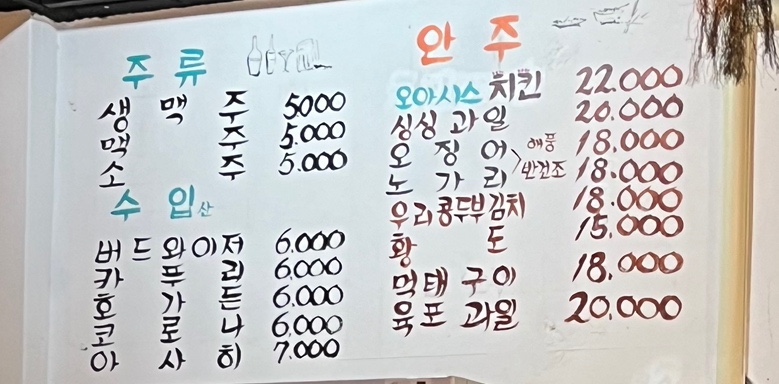 주류
생맥주 5000
맥주 5.000
소주 5.000
수입산
버드와이저 6.000
카푸리 6.000
호가든 6.000
코로나 6.000
아사히 7.000
안주
오아시스 치킨 22.000
싱싱과일 20.000
오징어 18.000
노가리 18.000
해풍
반건조
우리콩두부김치 18.000
황도 15.000
먹태구이 18.000
육포과일 20.000